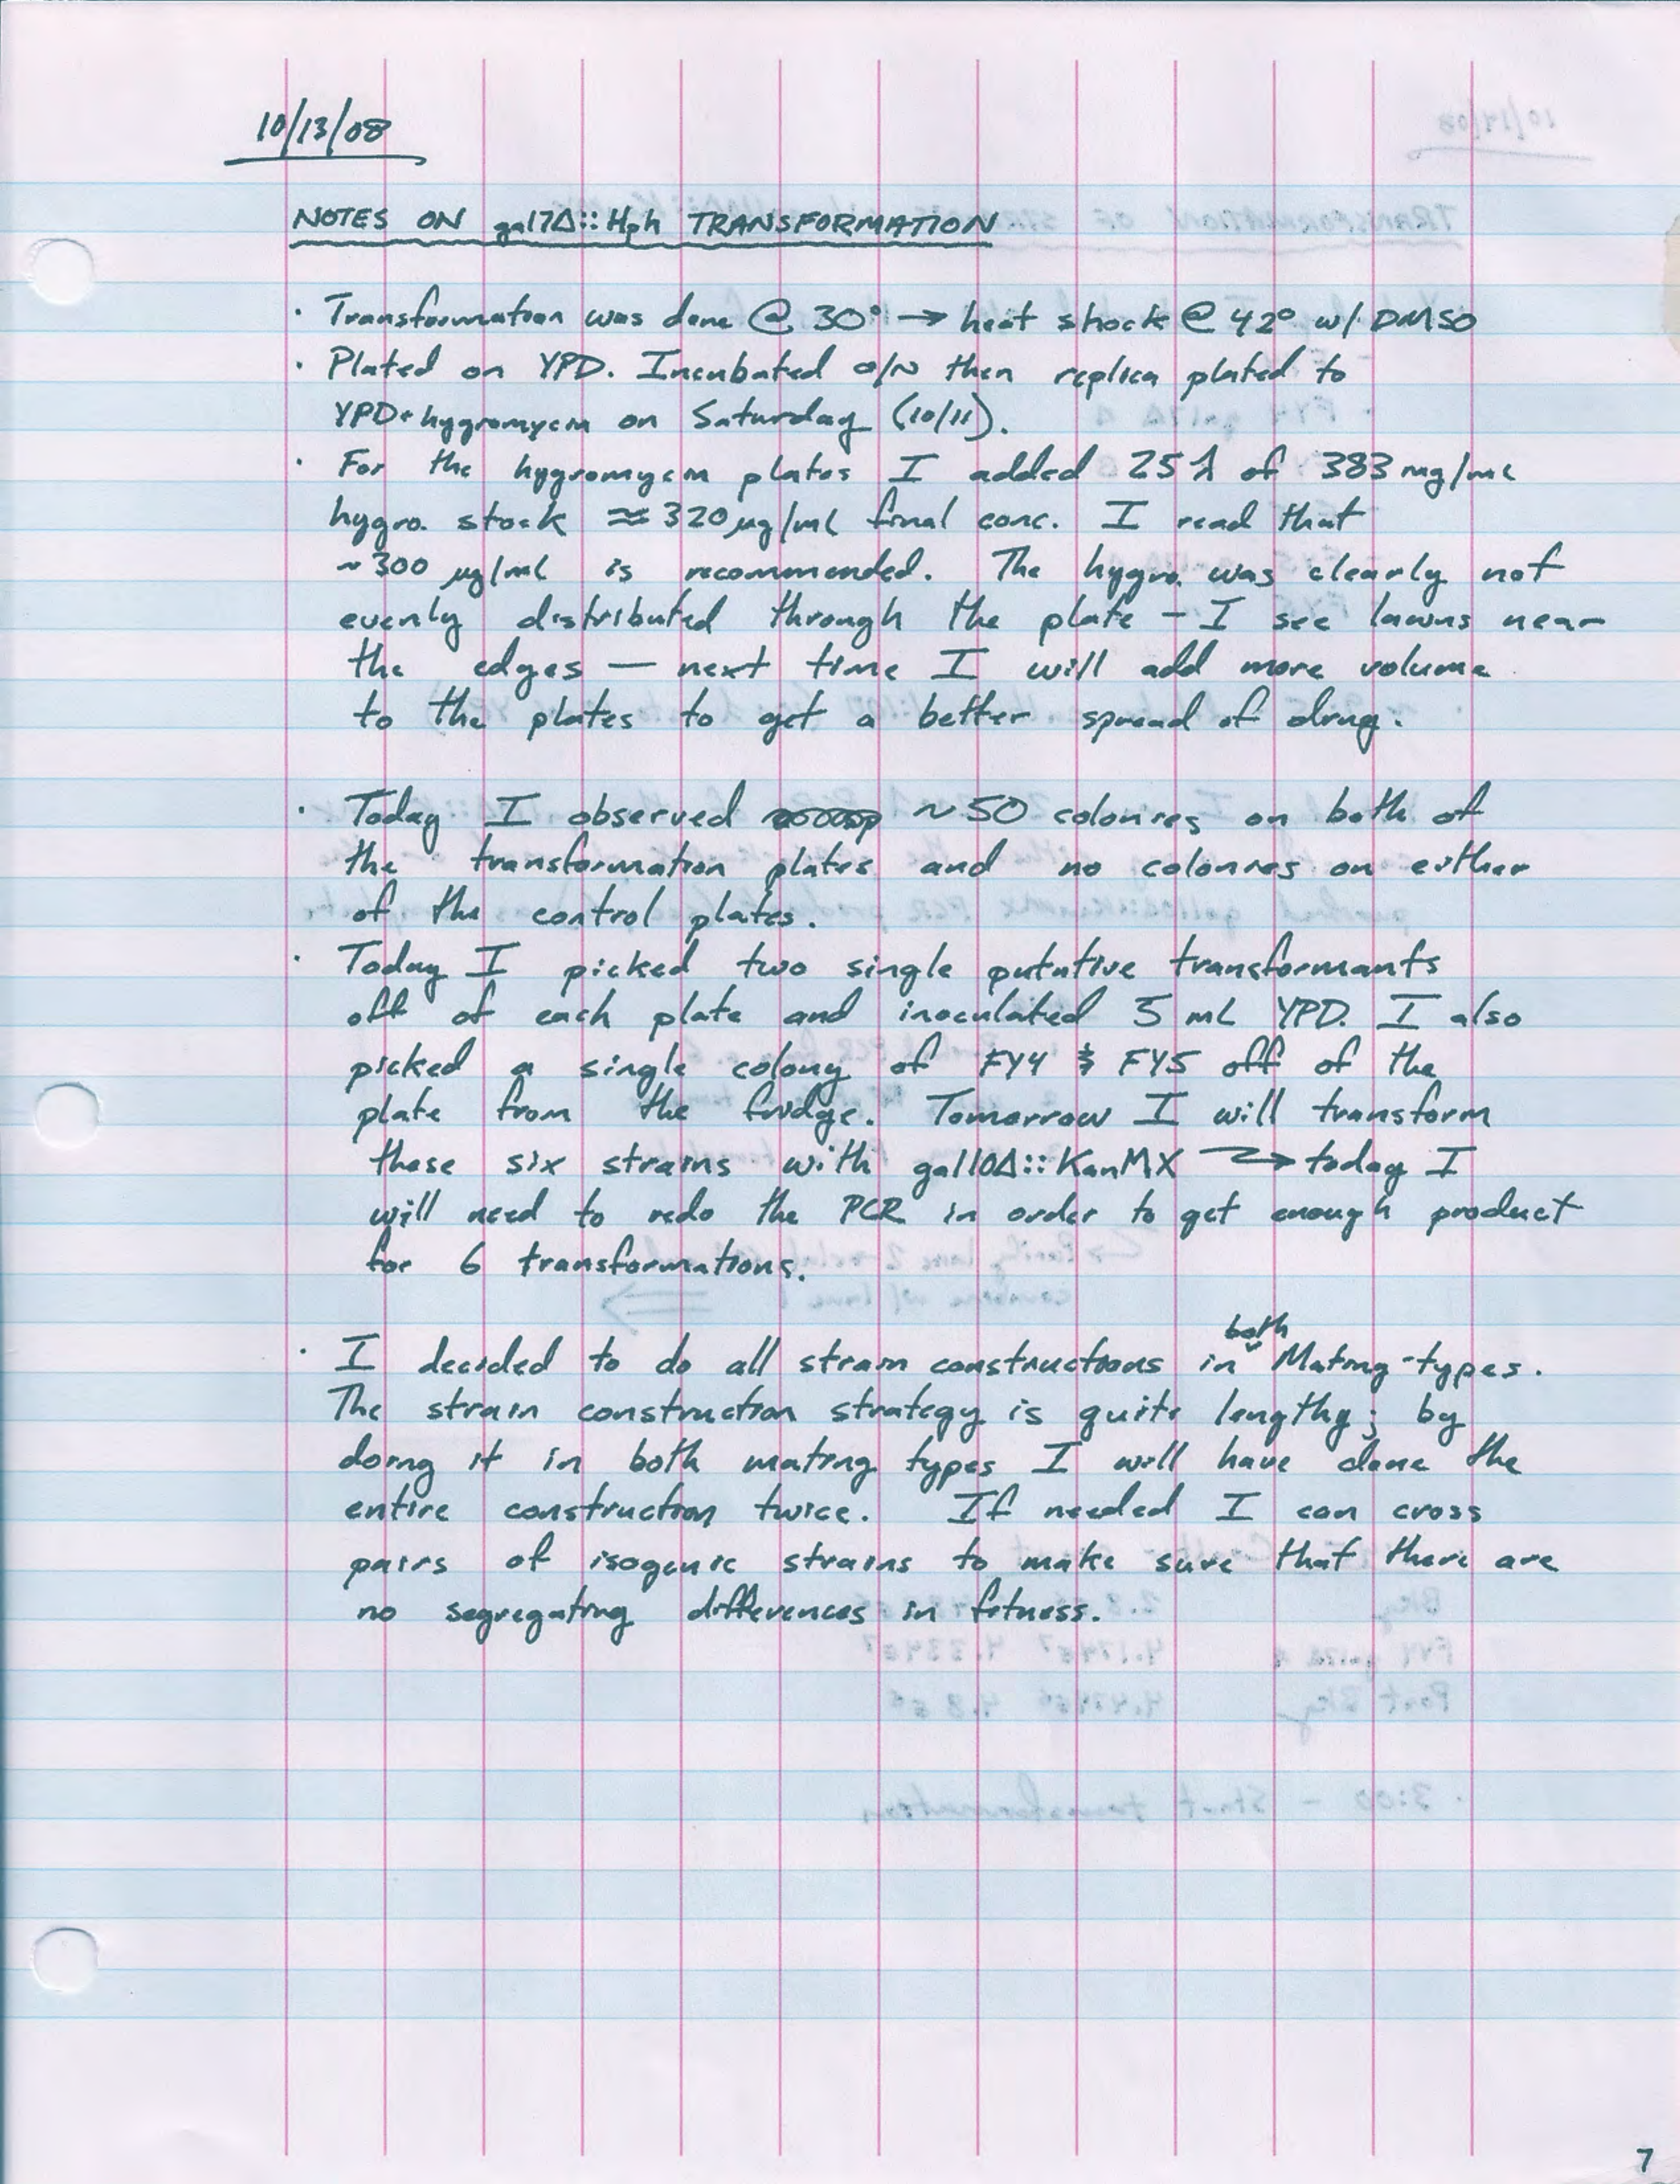 10/13/08
NOTES ON gal7Δ::Hph TRANSFORMATION
· Transformation was done @ 30° → heat shock @ 42° w/ DMSO
· Plated on YPD. Incubated o/N then replica plated to
YPD+hygromycin on Saturday (10/11).
· For the hygromycin plates I added 25λ of 383 mg/mL
hygro. stock ≈ 320 µg/mL final conc. I read that
~300 µg/mL is recommended. The hygro. was clearly not
evenly distributed through the plate – I see lawns near
the edges — next time I will add more volume
to the plates to get a better spread of drug.
· Today I observed ~50 colonies on both of
the transformation plates and no colonies on either
of the control plates.
· Today I picked two single putative transformants
off of each plate and inoculated 5 mL YPD. I also
picked a single colony of FY4 & FY5 off of the
plate from the fridge. Tomorrow I will transform
these six strains with gal10Δ::KanMX → today I
will need to redo the PCR in order to get enough product
for 6 transformations.
· I decided to do all strain constructions in both Mating-types.
The strain construction strategy is quite lengthy; by
doing it in both mating types I will have done the
entire construction twice. If needed I can cross
pairs of isogenic strains to make sure that there are
no segregating differences in fitness.
7